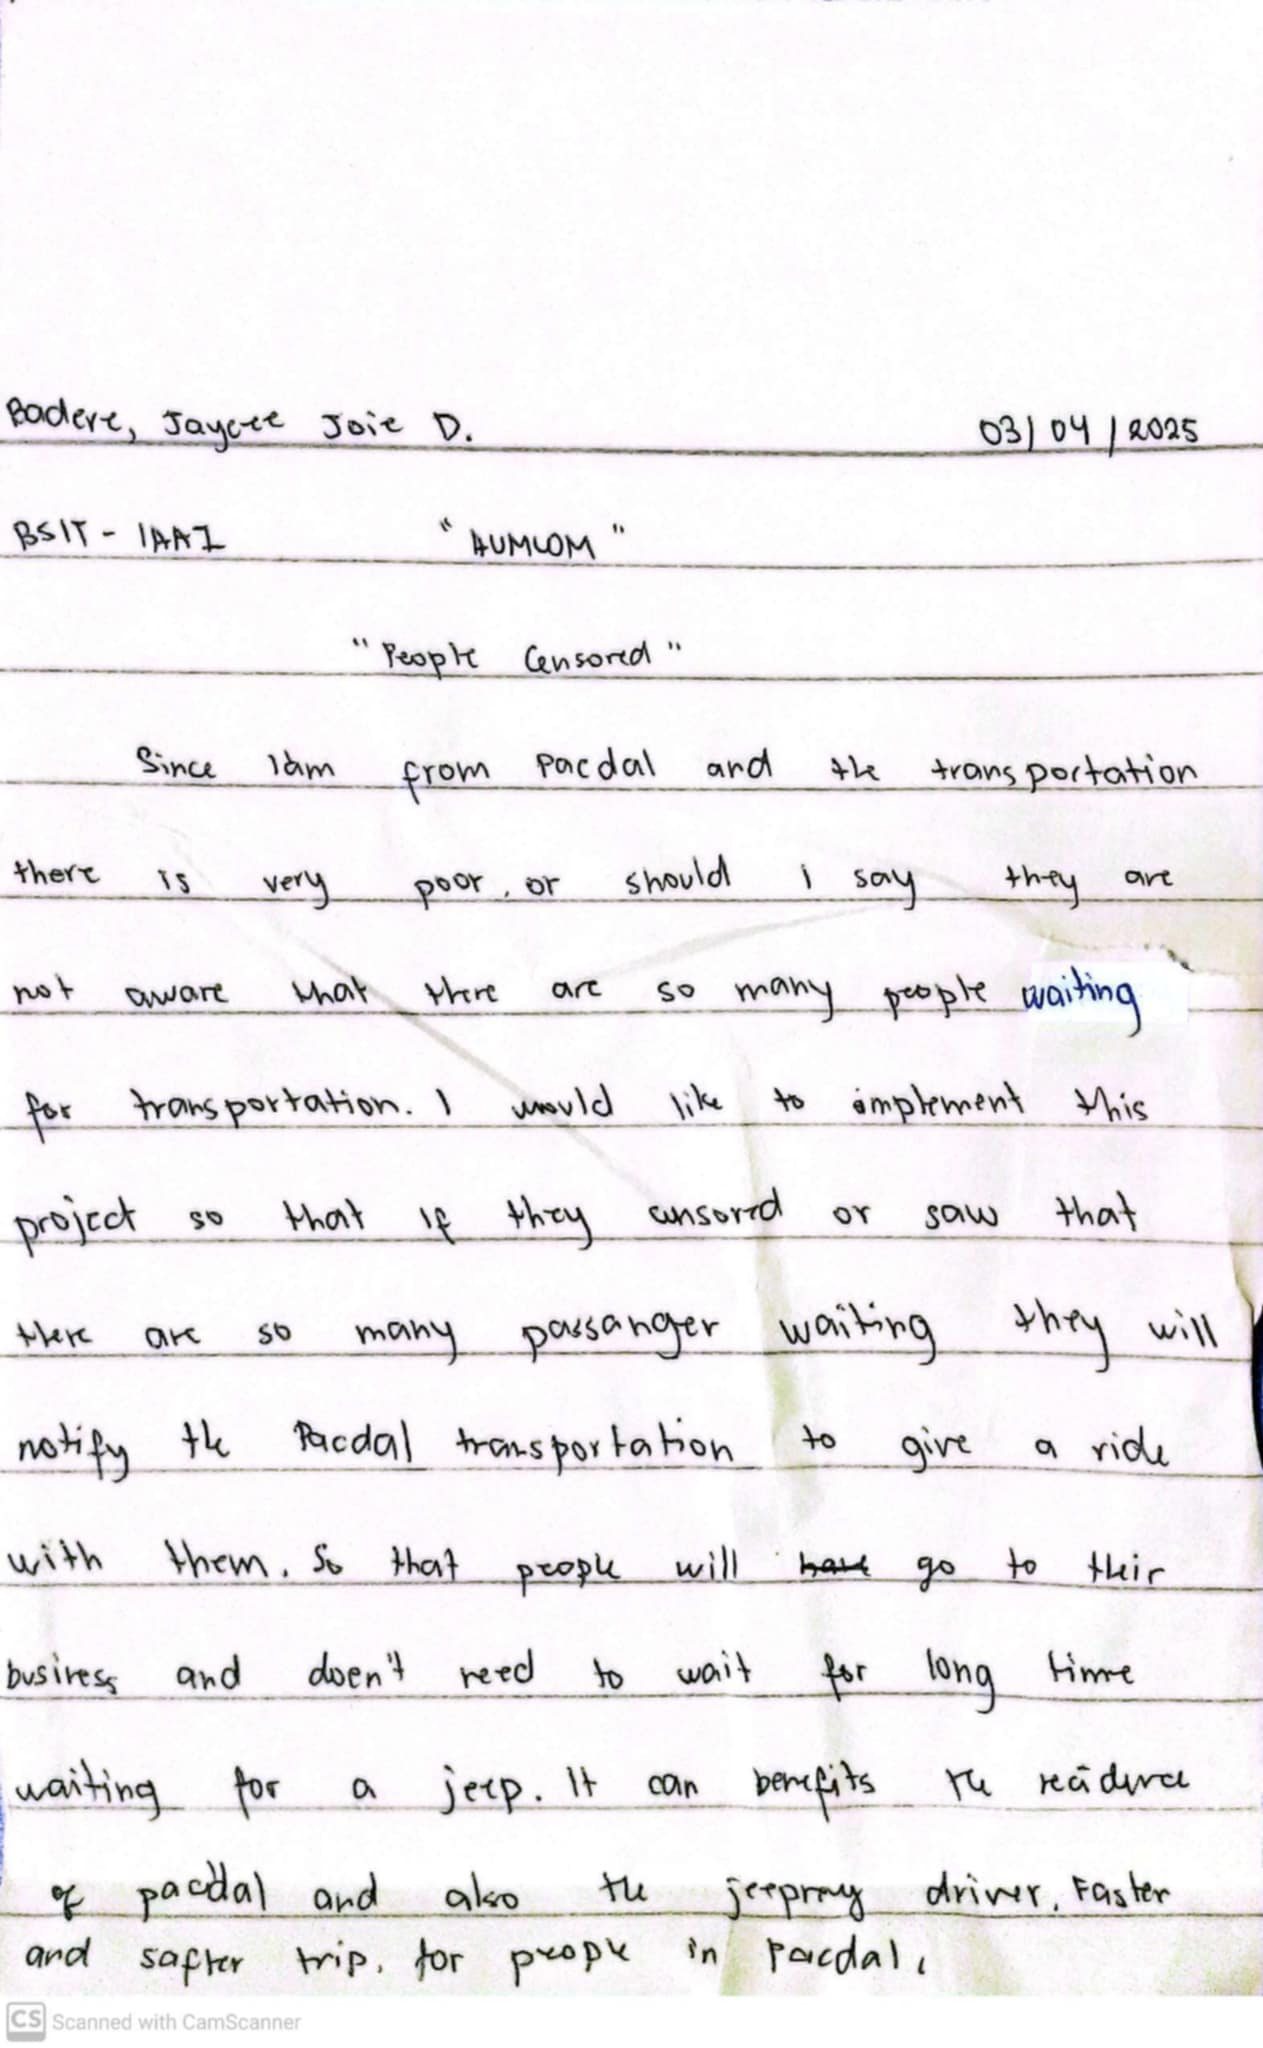 Badere, Jaycee Joie D. 03/04/2025
BSIT - 1AA1 "HUMCOM"
"People Censored"
Since Iam from Pacdal and the transportation
there is very poor, or should i say they are
not aware that there are so many people waiting
for transportation. I would like to implement this
project so that if they censored or saw that
there are so many passanger waiting they will
notify the Pacdal transportation to give a ride
with them. So that people will have go to their
business and doen't need to wait for long time
waiting for a jeep. It can benefits the
of pacdal and also the driver. Faster
and safter trip. for people in Pacdal.
CS Scanned with CamScanner